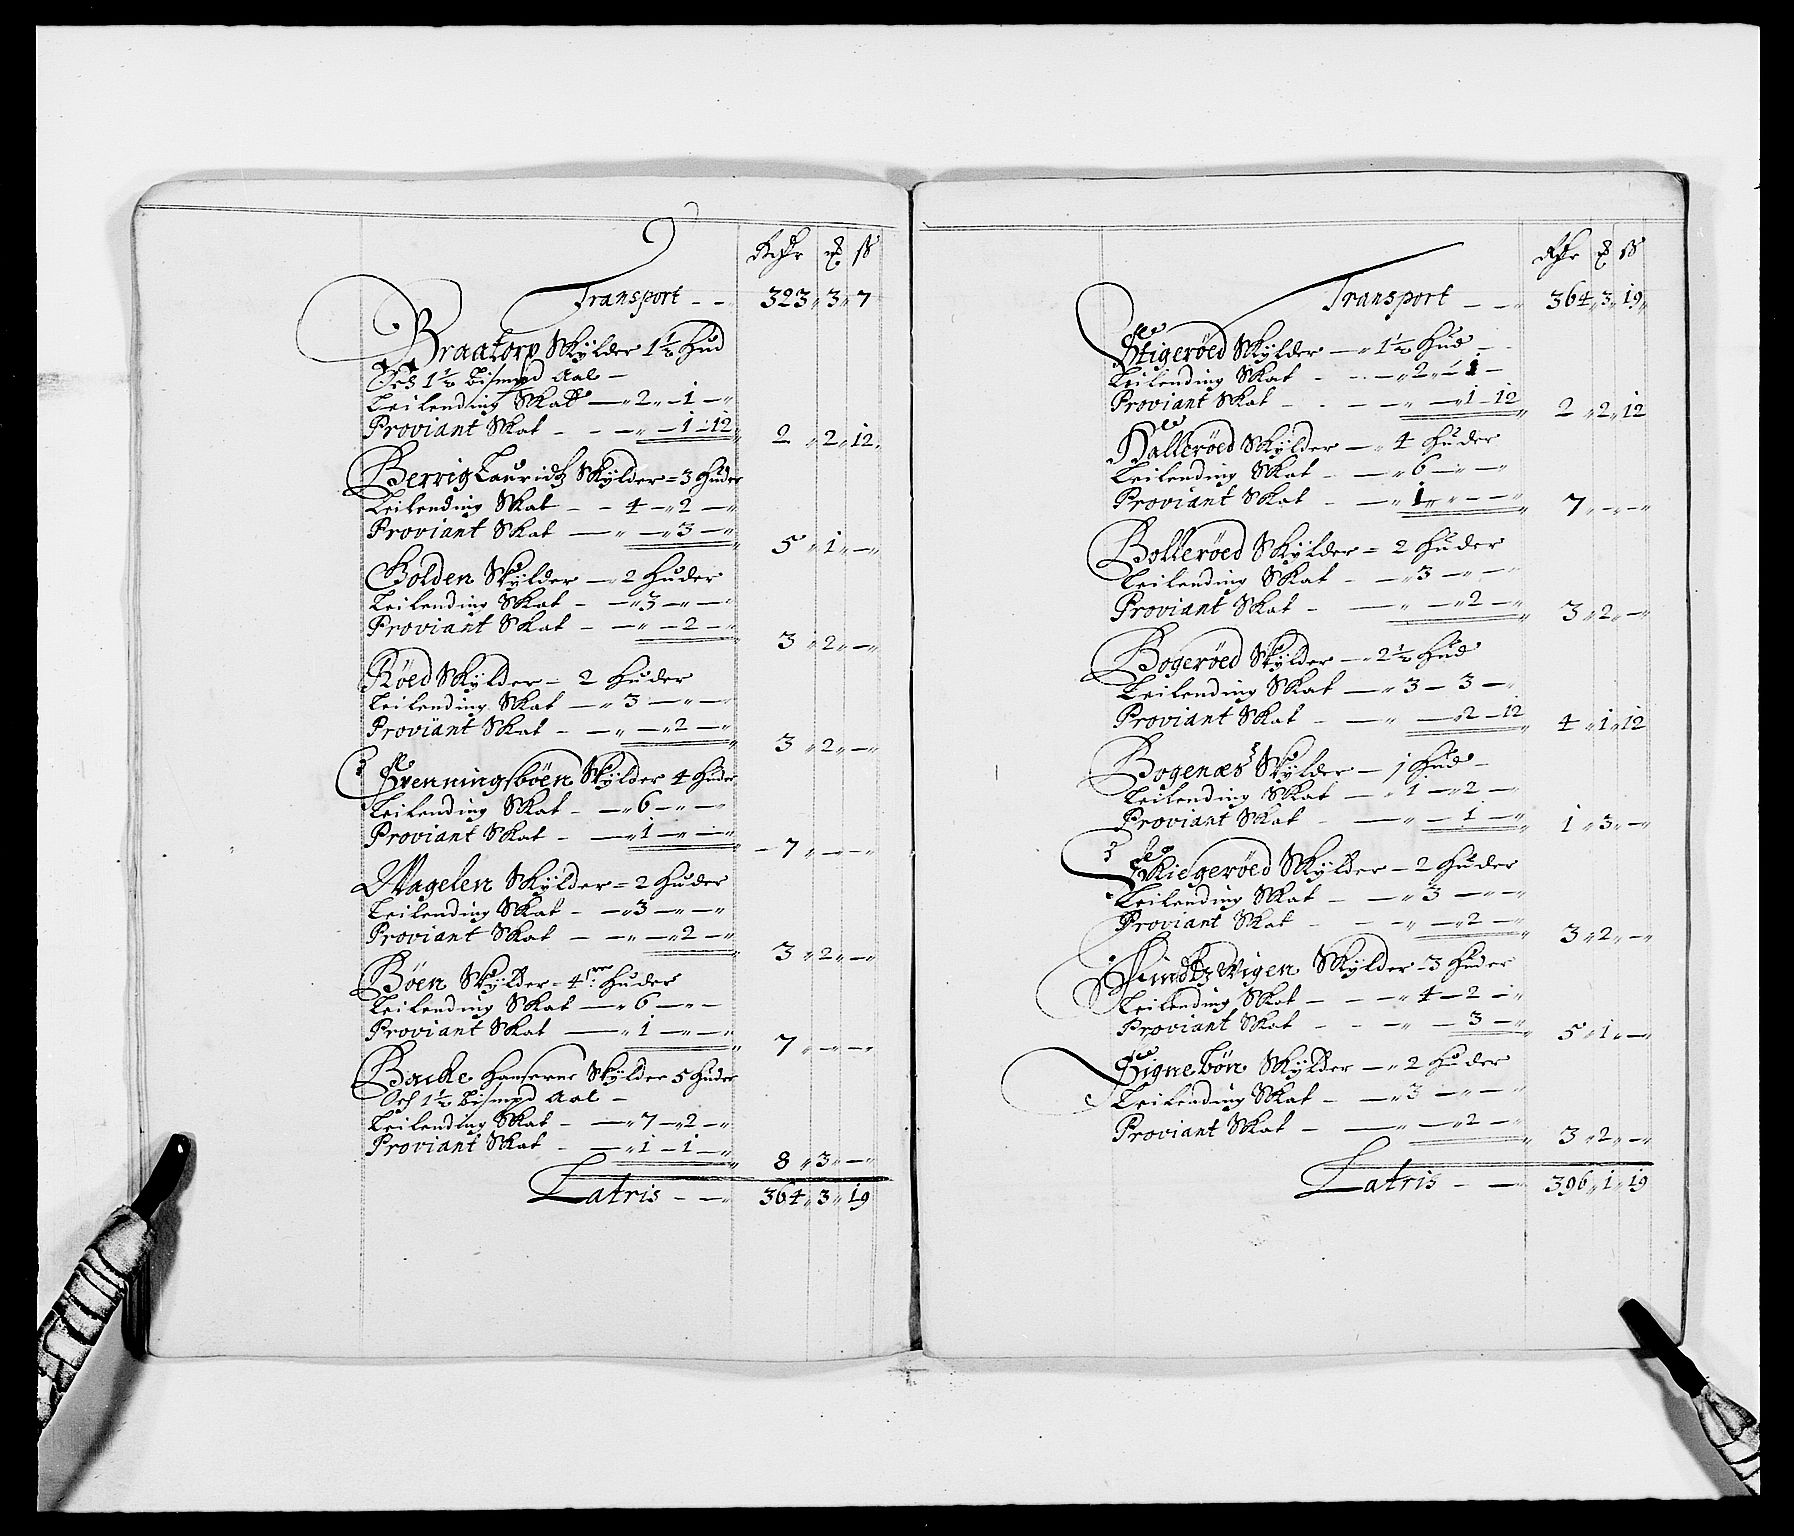 Rdlr ₰ ß
Transport - - 323 " 3 " 7
Braatorp Skylder 1½ hud
Och 1½ bismpd Aal -
Leilending Skatt — " 2 " - 1 - "
Proviant Skat - - - " - 1 - 12 " 2 " 2 " 12 "
Berrig Lauridtz Skylder = 3 huder
Leilending Skat - - 4 - " 2 - "
Proviant Skat — " - " 3 - " 5 " 1 " - "
Bolden Skylder — " 2 huder
Leilending Skat - - " 3 - " - "
Proviant Skat - - " - 2 - " 3 " 2 " - "
Röed Skylder - 2 huder
Leilending Skat — " 3 - " - "
Proviant Skat - - " - " 2 - " 3 " 2 " - "
Svenningsböen Skylder 4 huder
Leilending Skat - - " 6 - " - "
Proviant Skat - - " 1 - " - " - 7 " - " - "
Wagelen Skylder = 2 huder
Leilending Skat - - " 3 - " - "
Proviant Skat - - " - " 2 - " 3 " 2 " - "
Böen Skylder - 4 huder
Leilending Skat - " 6 - " -
Proviant Skat — " 1 - " - " 7 " - " - "
Backe Skylder 5 huder
Och 1½ bismpd Aal -
Leilending Skat - - " 7 - " 2 - "
Proviant Skat - - " 1 - 1 - " 8 " 3 " - "
Latris - - " 364 " 3 " 19
Rdlr ₰ ß
Transport - - " 364 " 3 " 19 "
Stigeröed Skylder — " 1½ hud -
Leilending Skat - - - " 2 " - 1 -
Proviant Skat - - - " - " 1 - 12 " 2 " 2 " 12
Halleröed Skylder — " 4 huder
Leilending Skat - - " 6 - " - "
Proviant Skat - - " 1 " " - - " 7 " - " - "
Bolleröed Skylder = 2 huder
Leilending Skat - - " 3 - " - "
Proviant Skat - — " - " 2 - " 3 " 2 " - "
Bogeröed Skylder — " 2½ hud
Leilending Skat — " 3 - 3 - "
Proviant Skat - — " - " 2 - 12 4 " 1 " 12
Bogenæs Skylder — 1 hud -
Leilending Skat — " 1 - " 2 - "
Proviant Skat - — " - 1 - " 1 " 3 " - "
Skiegeröed Skylder - 2 huder
Leilending Skat - - " 3 - " - "
Proviant Skat - - " - " 2 - " 3 " 2 " - "
Sundtz Wigen Skylder - 3 huder
Leilending Skat - - - " 4 - 2 - "
Proviant Skat - - - " - 3 - " 5 " 1 " - "
Signebön Skylder — " 2 huder
Leilending Skat - - " 3 - " - "
Proviant Skat - — " - " 2 - " 3 " 2 " - "
Latris - - " 396 " 1 " 19